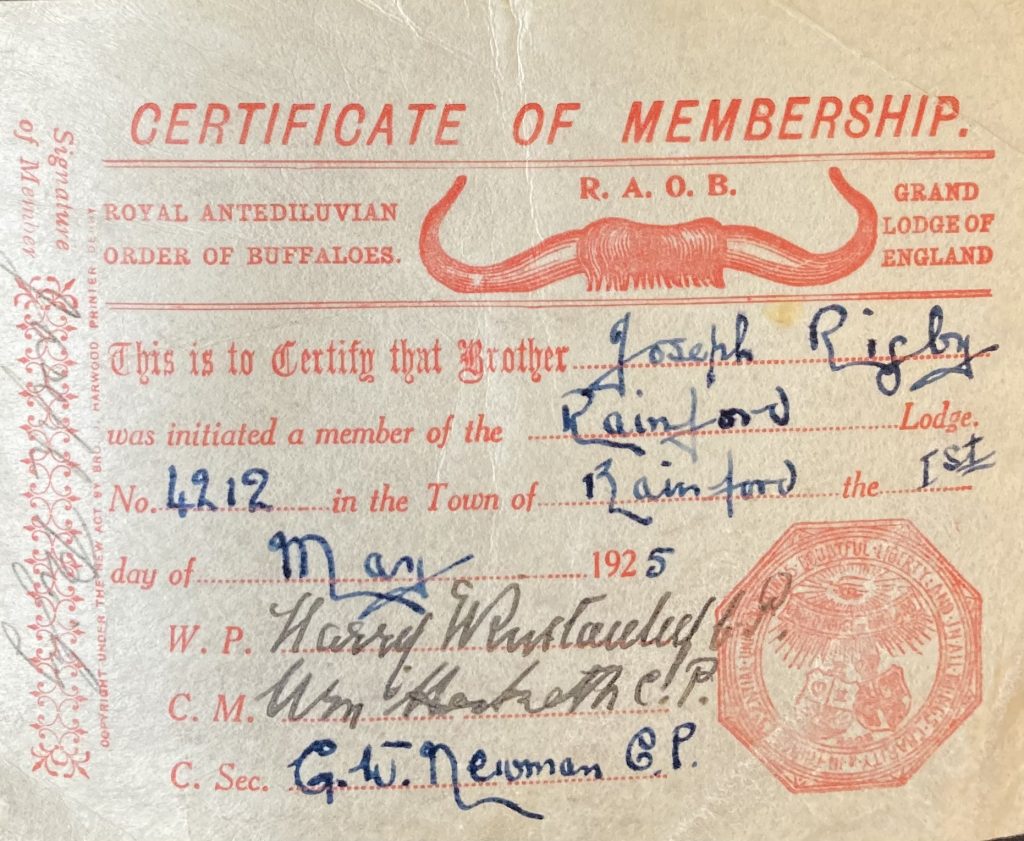 CERTIFICATE OF MEMBERSHIP.
ROYAL ANTEDILUVIAN
ORDER OF BUFFALOES.
R. A. O. B.
GRAND
LODGE OF
ENGLAND
This is to Certify that Brother Joseph Rigby
was initiated a member of the Rainford Lodge.
No. 4212 in the Town of Rainford the 1st
day of May 1925
W. P. Harry Winstanley C.P.
C. M. Wm Hesketh C.P.
C. Sec. G. W. Newman C.P.
Signature
of Member
Joseph Rigby
COPYRIGHT UNDER THE NEW ACT BY BRO. HARWOOD PRINTER DERBY